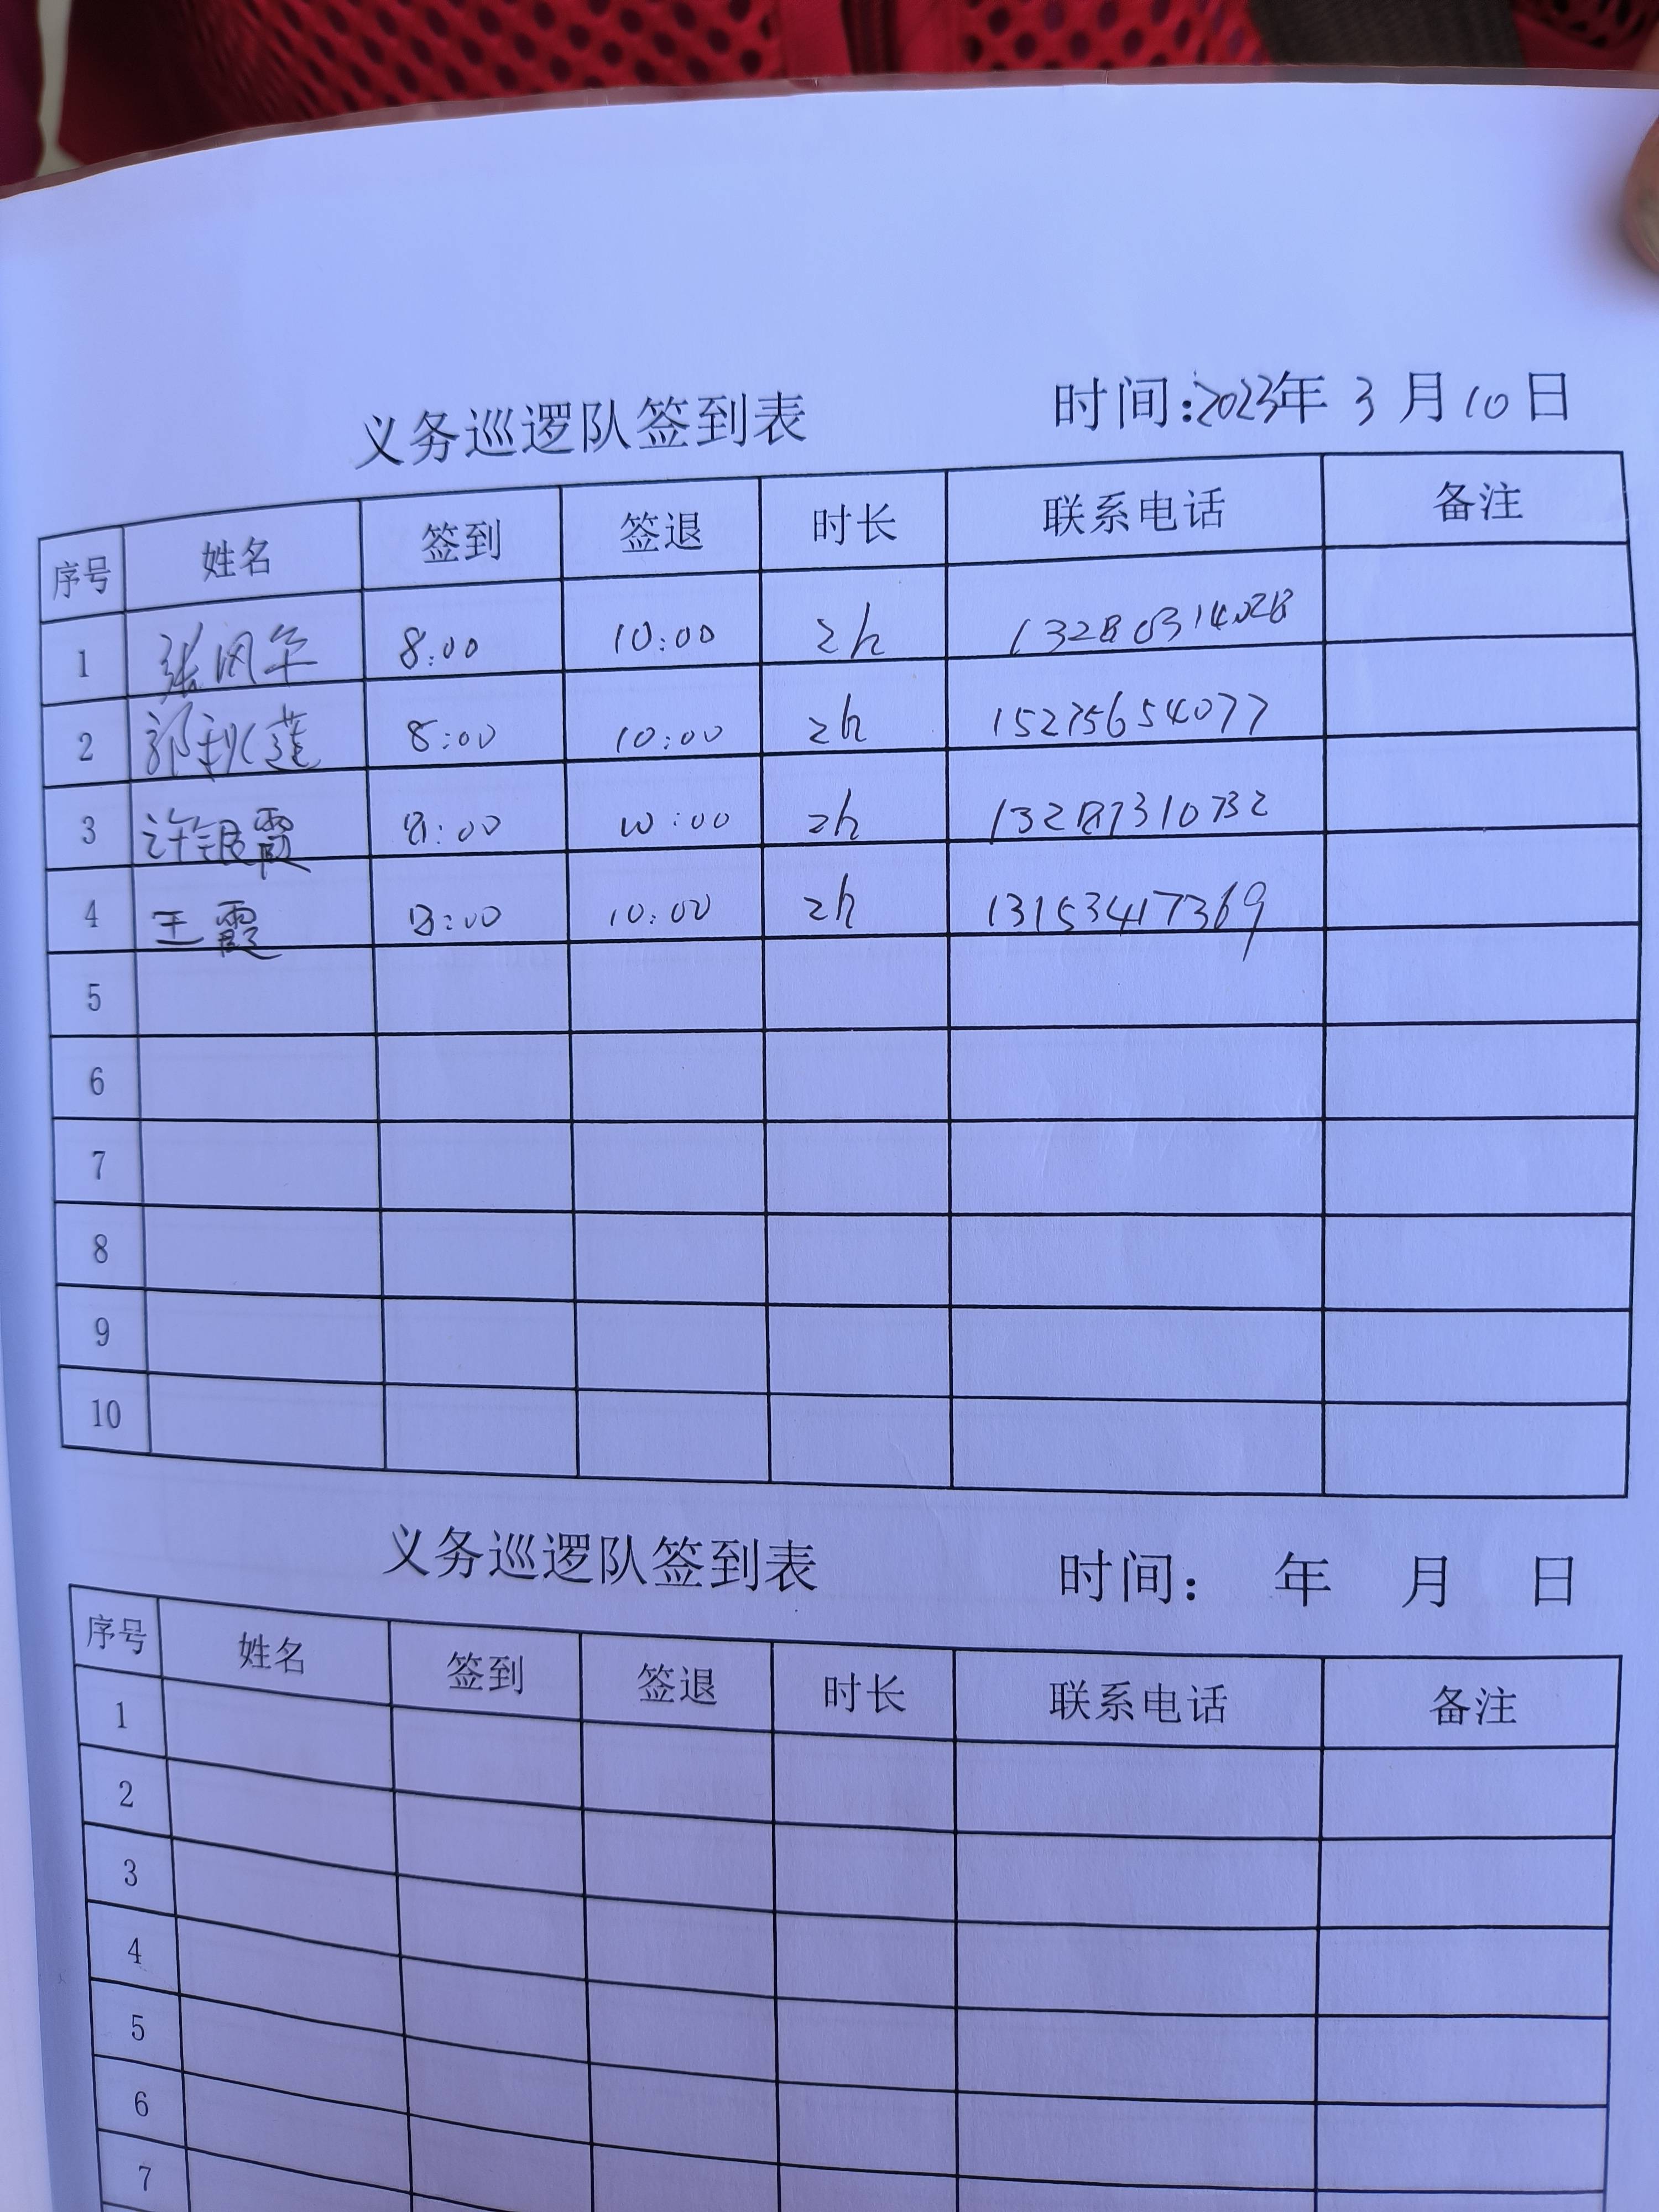 义务巡逻队签到表 时间:2023年 3 月 10 日
序号 姓名 签到 签退 时长 联系电话 备注
1 张风年 8:00 10:00 2h 13280314028
2 郭秋莲 8:00 10:00 2h 15275654077
3 许银霞 8:00 10:00 2h 13287310732
4 王霞 8:00 10:00 2h 13153417369
5
6
7
8
9
10
义务巡逻队签到表 时间: 年 月 日
序号 姓名 签到 签退 时长 联系电话 备注
1
2
3
4
5
6
7